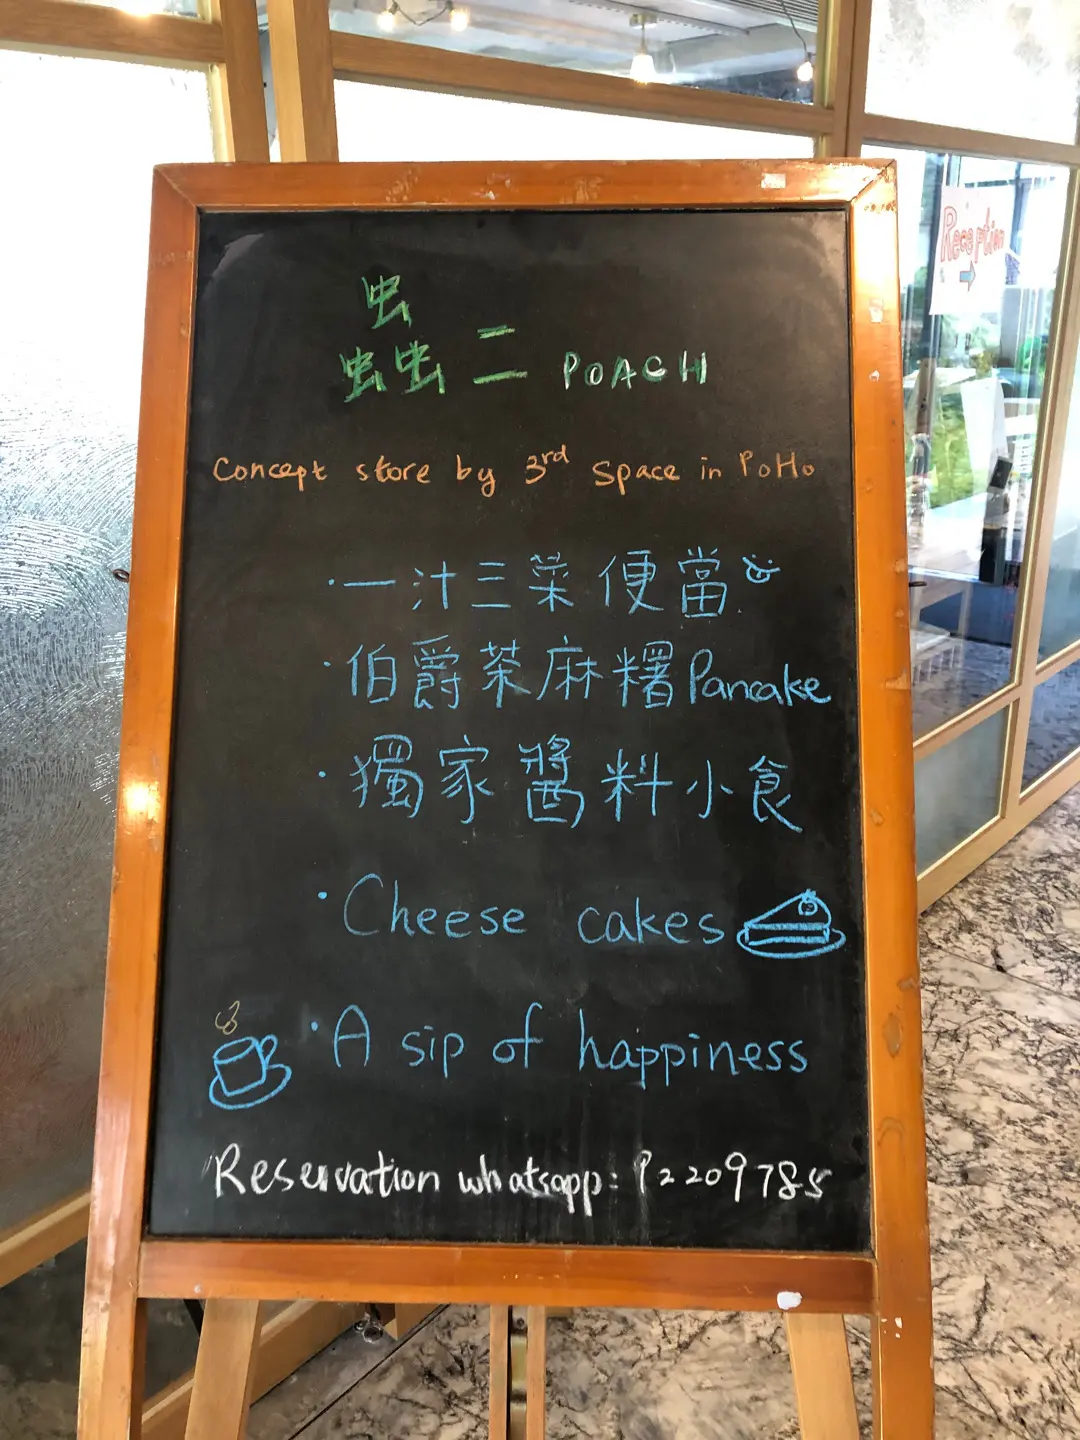 蟲二 POACH
Concept store by 3rd Space in PoHo
· 一汁三菜便當
· 伯爵茶麻糬Pancake
· 獨家醬料小食
· Cheese cakes
· A sip of happiness
Reservation whatsapp: 92209785
Reception →